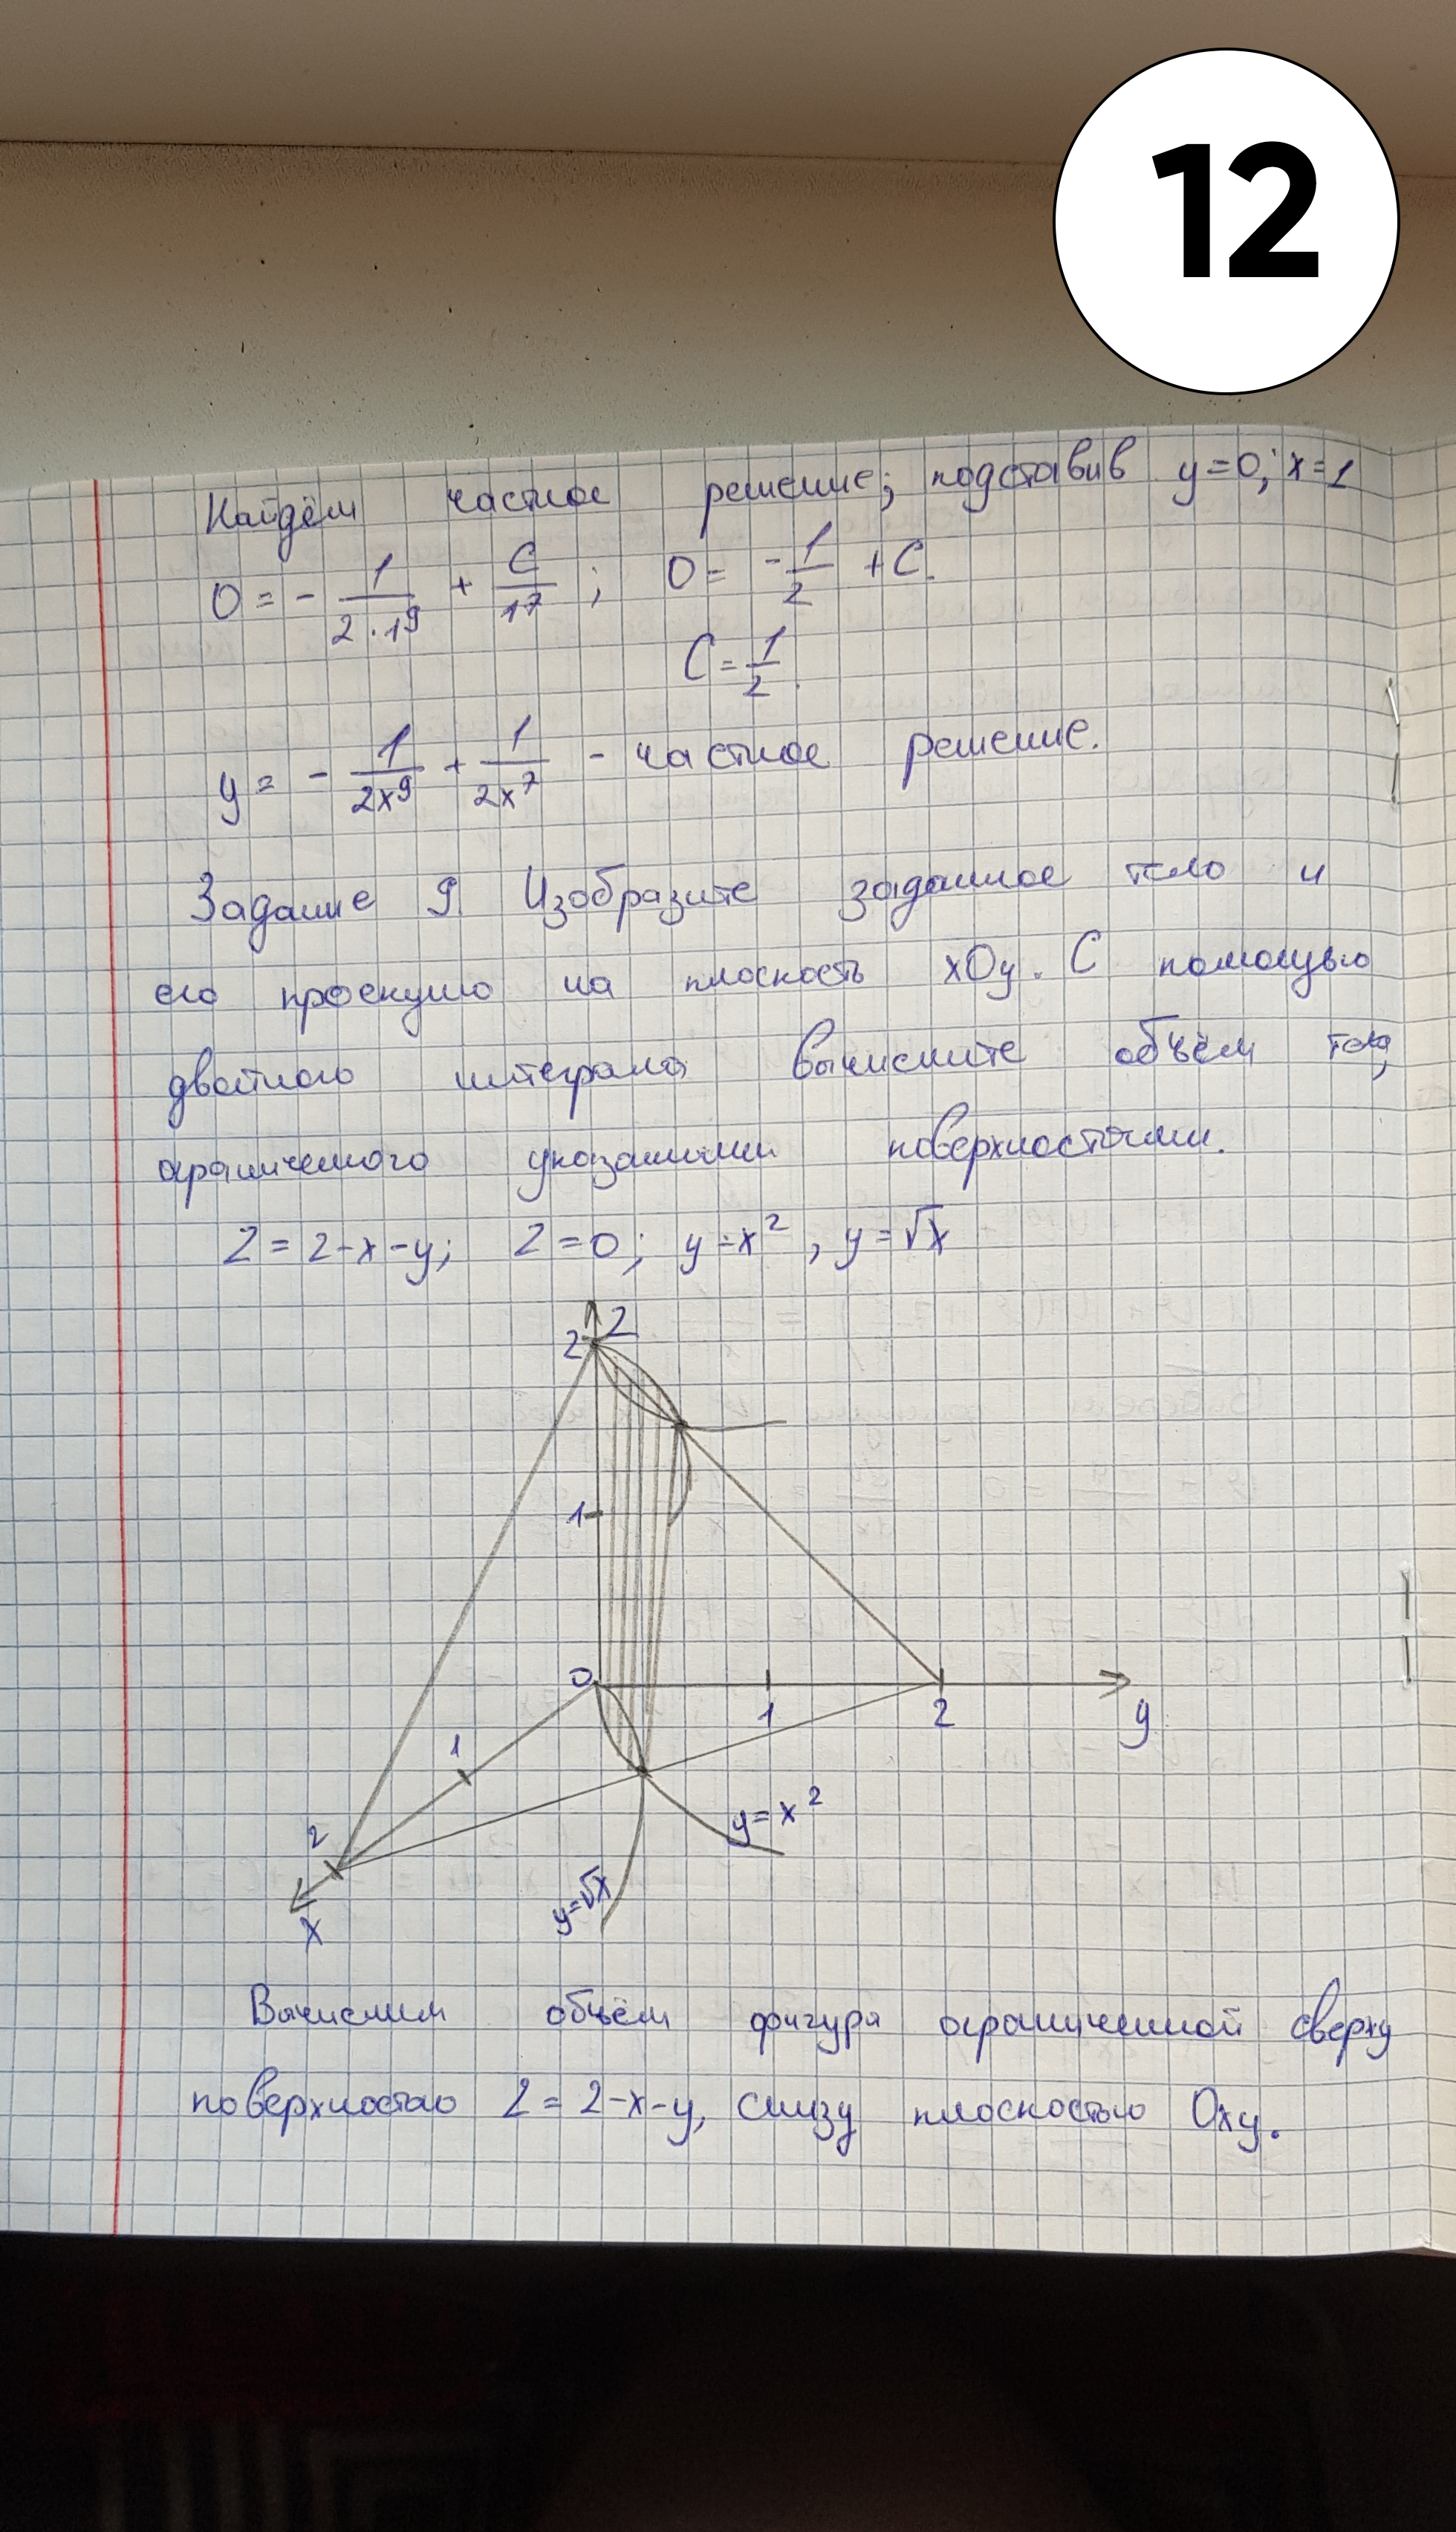 12
Найдём частное решение; подставив y=0; x=1
0 = - 1/(2·1⁹) + C/1⁷ ; 0 = - 1/2 + C.
C = 1/2.
y = - 1/(2x⁹) + 1/(2x⁷) - частное решение.
Задание 9. Изобразите заданное тело и
его проекцию на плоскость xOy. С помощью
двойного интеграла вычислите объём тела,
ограниченного указанными поверхностями.
Z = 2-x-y; Z = 0; y = x², y = √x
Z
2
1
0
1
2
y
1
2
x
y = x²
y = √x
Вычислим объём фигуры ограниченной сверху
поверхностью Z = 2-x-y, снизу плоскостью Oxy.